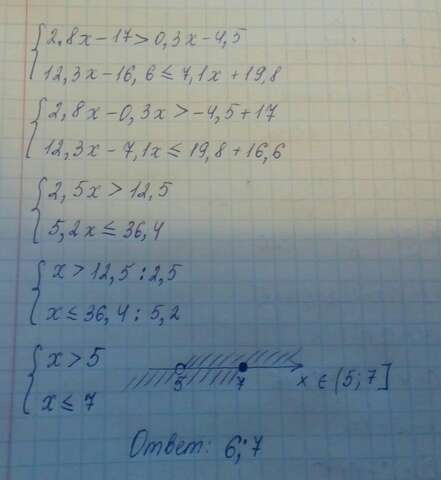 2,8x-17>0,3x-4,5
12,3x-16,6≤7,1x+19,8
2,8x-0,3x>-4,5+17
12,3x-7,1x≤19,8+16,6
2,5x>12,5
5,2x≤36,4
x>12,5:2,5
x≤36,4:5,2
x>5
x≤7
5 7 x ∈ (5;7]
Ответ: 6;7